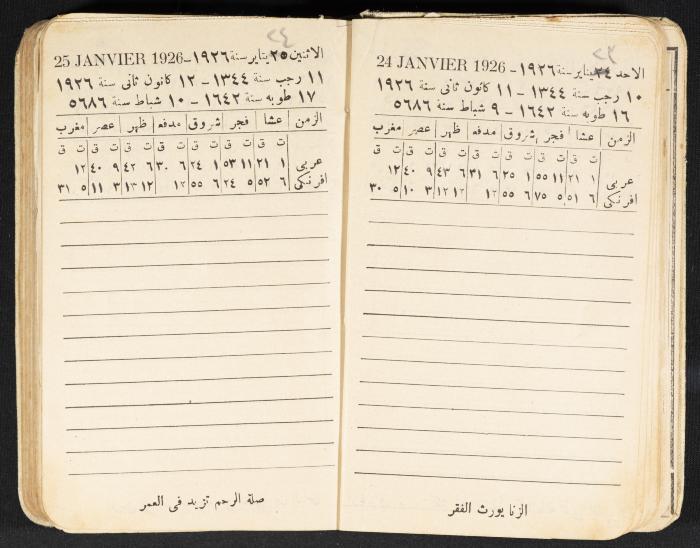 ٢٣
الاحد ٢٤ يناير سنة ١٩٢٦ - 24 JANVIER 1926
١٠ رجب سنة ١٣٤٤ - ١١ كانون ثانى سنة ١٩٢٦
١٦ طوبه سنة ١٦٤٢ - ٩ شباط سنة ٥٦٨٦
الزمن عشا فجر شروق مدفع ظهر عصر مغرب
ت ق ت ق ت ق ت ق ت ق ت ق ت ق
عربى ١ ٢١ ١١ ٥٥ ١ ٢٥ ٦ ٣١ ٦ ٤٣ ٩ ٤٠ ١٢
افرنكى ٦ ٥١ ٥ ٧٥ ٦ ٥٥ ١٢ ١٢ ١٢ ٣ ١٠ ٥ ٣٠
الزنا يورث الفقر
٢٤
الاثنين ٢٥ يناير سنة ١٩٢٦ - 25 JANVIER 1926
١١ رجب سنة ١٣٤٤ - ١٢ كانون ثانى سنة ١٩٢٦
١٧ طوبه سنة ١٦٤٢ - ١٠ شباط سنة ٥٦٨٦
الزمن عشا فجر شروق مدفع ظهر عصر مغرب
ت ق ت ق ت ق ت ق ت ق ت ق ت ق
عربى ١ ٢١ ١١ ٥٣ ١ ٢٤ ٦ ٣٠ ٦ ٤٢ ٩ ٤٠ ١٢
افرنكى ٦ ٥٢ ٥ ٢٤ ٦ ٥٥ ١٢ ١٢ ١٣ ٣ ١١ ٥ ٣١
صلة الرحم تزيد فى العمر